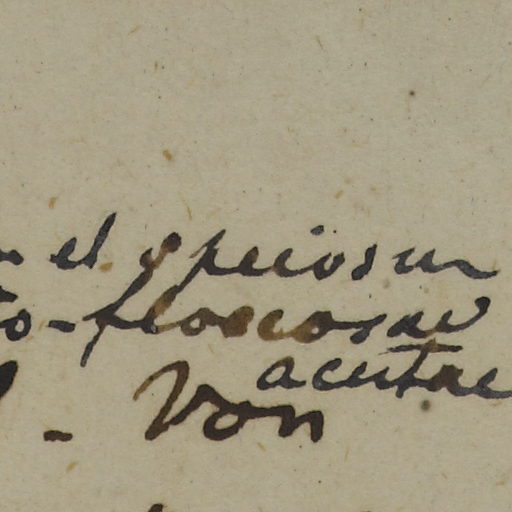 el speciosum
to-floccosae
acutae
- Von